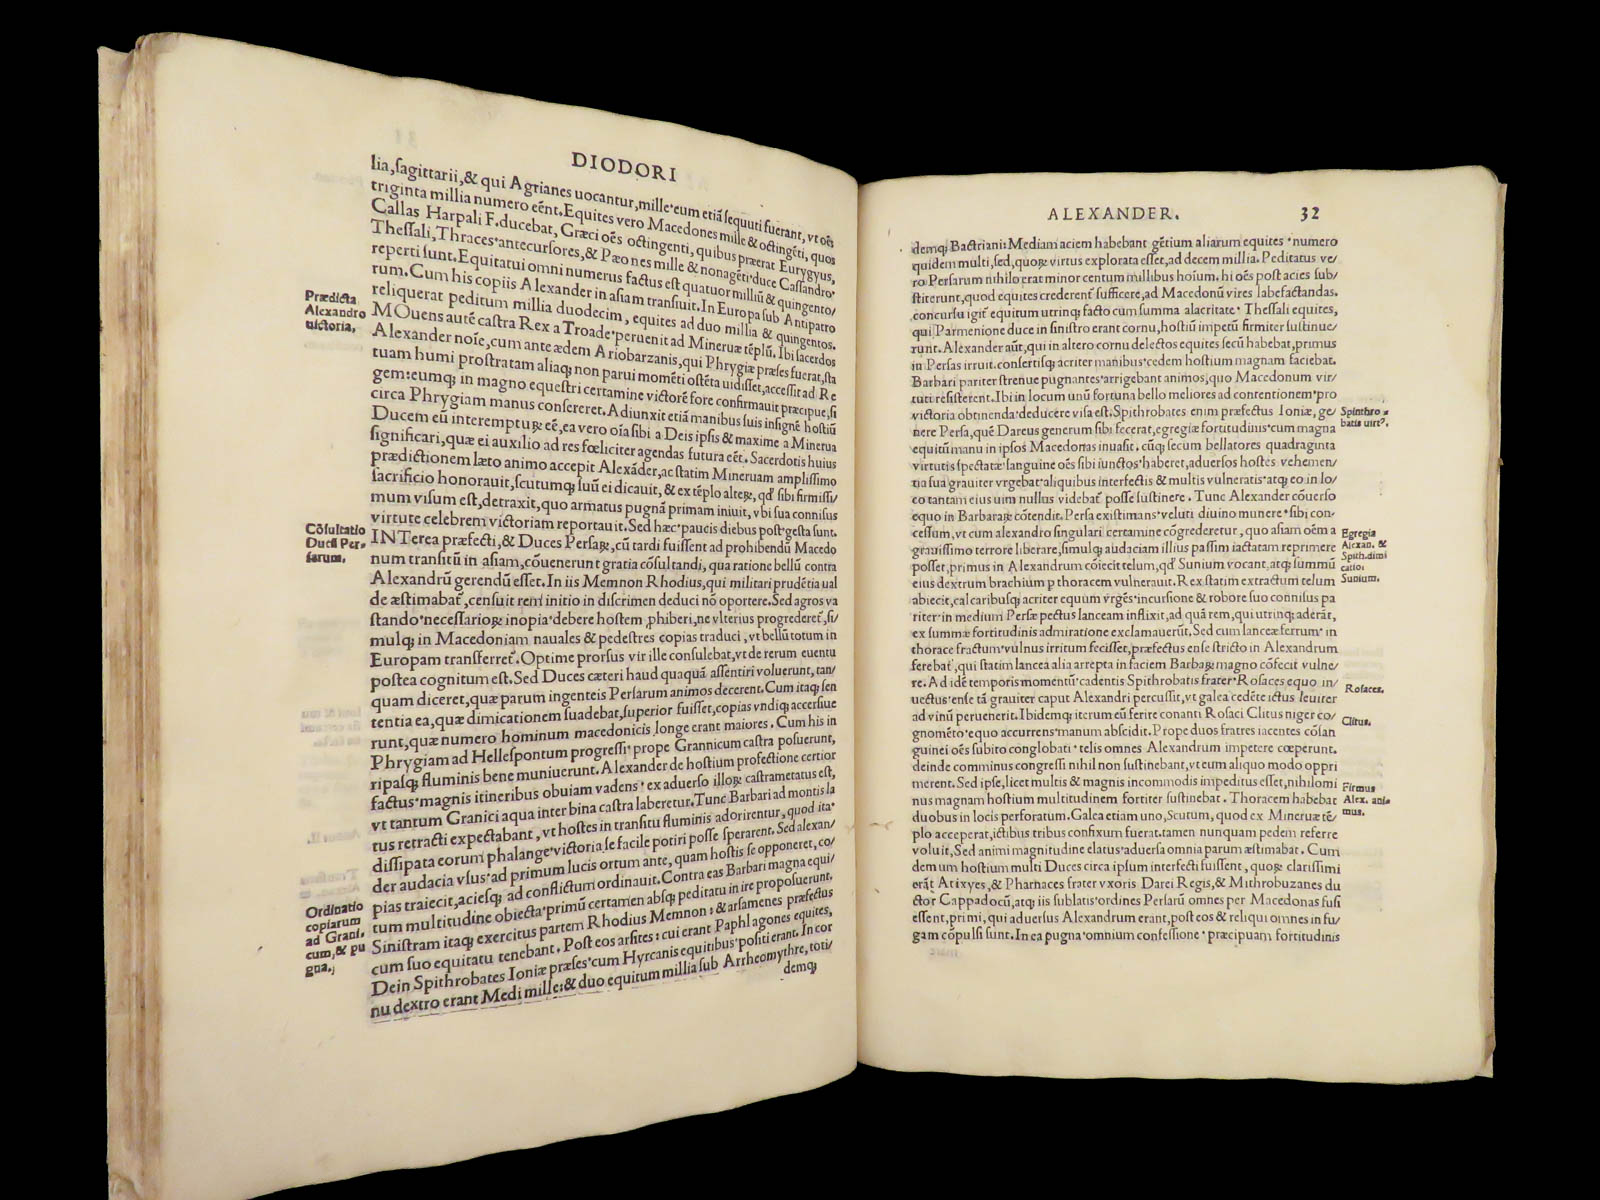 DIODORI
lia,ſagittarii,& qui Agrianes uocantur,mille·eum etiã ſequuti fuerant, vt oẽs
triginta millia numero eẽnt.Equites vero Macedones mille & octingẽti, quos
Callas Harpali F.ducebat, Græci oẽs octingenti, quibus præerat Eurygyus,
Theſſali,Thraces·antecurſores,& Pæones mille & nonagẽti·duce Caſſandro·
reperti ſunt.Equitatui omni numerus factus eſt quatuor milliũ & quingento/
rum.Cum his copiis Alexander in aſiam tranſiuit.In Europa ſub Antipatro
reliquerat peditum millia duodecim, equites ad duo millia & quingentos.
Prædicta
Alexandro
uictoria.
MOuens autẽ caſtra Rex a Troade·peruenit ad Mineruæ tẽplũ. Ibi ſacerdos
Alexander noĩe,cum ante ædem Ariobarzanis,qui Phrygiæ præſes fuerat,ſta
tuam humi proſtratam aliaq; non parui momẽti oſtẽta uidiſſet,acceſſit ad Re
gem:eumq; in magno equeſtri certamine victorẽ fore confirmauit præcipue,ſi
circa Phrygiam manus conſereret.Adiunxit etiã manibus ſuis inſignẽ hoſtiũ
Ducem eũ interempturꝝ eẽ,ea vero oĩa ſibi a Deis ipſis & maxime a Minerua
ſignificari,quæ ei auxilio ad res fœliciter agendas futura eẽt. Sacerdotis huius
prædictionem læto animo accepit Alexãder,ac ſtatim Mineruam ampliſſimo
ſacrificio honorauit,ſcutumq; ſuũ ei dicauit, & ex tẽplo alteꝝ, qđ ſibi firmiſſi/
mum viſum eſt,detraxit,quo armatus pugnã primam iniuit, vbi ſua conniſus
virtute celebrem victoriam reportauit.Sed hæc·paucis diebus poſt·geſta ſunt.
Cõſultatio
Ducũ Per-
ſarum.
INTerea præfecti,& Duces Perſaꝝ,cũ tardi fuiſſent ad prohibendũ Macedo
num tranſitũ in aſiam,cõuenerunt gratia cõſultandi, qua ratione bellũ contra
Alexandrũ gerendũ eſſet. In iis Memnon Rhodius,qui militari prudẽtia ual
de æſtimabat᷑,cenſuit rem initio in diſcrimen deduci nõ oportere.Sed agros va
ſtando·neceſſarioꝝ inopia·debere hoſtem ꝓhiberi,ne vlterius progrederet᷑,ſi/
mulq; in Macedoniam nauales & pedeſtres copias traduci, vt bellũ totum in
Europam transferret᷑. Optime prorſus vir ille conſulebat,vt de rerum euentu
poſtea cognitum eſt.Sed Duces cæteri haud quaquã aſſentiri voluerunt,tan/
quam diceret,quæ parum ingenteis Perſarum animos decerent.Cum itaq; ſen
tentia ea,quæ dimicationem ſuadebat,ſuperior fuiſſet,copias vndiq; accerſiue
runt,quæ numero hominum macedonicis longe erant maiores. Cum his in
Phrygiam ad Helleſpontum progreſſi·prope Grannicum caſtra poſuerunt,
ripaſq; fluminis bene muniuerunt. Alexander de hoſtium profectione certior
factus·magnis itineribus obuiam vadens·ex aduerſo illoꝝ caſtrametatus eſt,
vt tantum Granici aqua inter bina caſtra laberetur.Tunc Barbari ad montis la
tus retracti expectabant, vt hoſtes in tranſitu fluminis adorirentur, quod ita·
diſſipata eorum phalange·victoria ſe facile potiri poſſe ſperarent. Sed alexan/
der audacia vſus·ad primum lucis ortum ante, quam hoſtis ſe opponeret, co/
Ordinatio
copiarum
ad Grani-
cum,& pu
gna.
pias traiecit,acieſq; ad conflictum ordinauit.Contra eas Barbari magna equi/
tum multitudine obiecta·primũ certamen abſq; peditatu inire propoſuerunt.
Siniſtram itaq; exercitus partem Rhodius Memnon:& arſamenes præfectus
cum ſuo equitatu tenebant. Poſt eos arſites: cui erant Paphlagones equites,
Dein Spithrobates Ioniæ præſes·cum Hyrcanis equitibus·poſiti erant. In cor
nu dextro erant Medi mille:& duo equitum millia ſub Arrheomythre, toti/
demq;
ALEXANDER. 32
demq; Bactriani: Mediam aciem habebant gẽtium aliarum equites·numero
quidem multi,ſed, quoꝝ virtus explorata eſſet,ad decem millia. Peditatus ve/
ro Perſarum nihilo erat minor centum millibus hoĩum. hi oẽs poſt acies ſub/
ſtiterunt,quod equites crederent᷑ ſufficere,ad Macedonũ vires labefactandas.
concurſu igit᷑ equitum utrinq; facto cum ſumma alacritate· Theſſali equites,
qui Parmenione duce in ſiniſtro erant cornu,hoſtiũ impetũ firmiter ſuſtinue/
runt. Alexander aũt, qui in altero cornu delectos equites ſecũ habebat,primus
in Perſas irruit.conſertiſq; acriter manibus·cedem hoſtium magnam faciebat.
Barbari pariter ſtrenue pugnantes·arrigebant animos,quo Macedonum vir/
tuti reſiſterent. Ibi in locum unũ fortuna bello meliores ad contentionem·pro
victoria obtinenda·deducere viſa eſt. Spithrobates enim præfectus Ioniæ, ge/
Spinthro-
batis uirtꝰ.
nere Perſa,quẽ Dareus generum ſibi fecerat,egregiæ fortitudinis·cum magna
equitũ manu in ipſos Macedonas inuaſit. cũq; ſecum bellatores quadraginta
virtutis ſpectatæ·ſanguine oẽs ſibi iunctos·haberet,aduerſos hoſtes vehemen/
tia ſua grauiter vrgebat·aliquibus interfectis & multis vulneratis·atq; eo in lo/
co tantam eius uim nullus videbat᷑ poſſe ſuſtinere. Tunc Alexander cõuerſo
equo in Barbaꝝ cõtendit. Perſa exiſtimans·veluti diuino munere·ſibi con-
ceſſum,vt cum alexandro ſingulari certamine cõgrederetur, quo aſiam oẽm a
Egregia
Alexan. &
Spith.dimi
catio:
Sunium.
grauiſſimo terrore liberare,ſimulq; audaciam illius paſſim iactatam reprimere
poſſet,primus in Alexandrum cõiecit telum,qđ Sunium vocant,atq; ſummũ
eius dextrum brachium ꝑ thoracem vulnerauit. Rex ſtatim extractum telum
abiecit,calcaribuſq; acriter equum vrgẽs·incurſione & robore ſuo conniſus pa
riter·in medium Perſæ pectus lanceam inflixit,ad quã rem,qui utrinq; aderãt,
ex ſummæ fortitudinis admiratione exclamauerũt.Sed cum lanceæ ferrum·in
thorace fractum·vulnus irritum feciſſet,præfectus enſe ſtricto in Alexandrum
ferebat᷑,qui ſtatim lancea alia arrepta in faciem Barbaꝝ magno cõfecit vulne/
re. Ad idẽ temporis momentũ·cadentis Spithrobatis frater·Roſaces equo in/
Roſaces.
uectus·enſe tã grauiter caput Alexandri percuſſit,vt galea cedẽte·ictus leuiter
ad vinũ peruenerit.Ibidemq; iterum eũ ferire conanti Roſaci Clitus niger co/
Clitus.
gnomẽto·equo accurrens·manum abſcidit.Prope duos fratres iacentes cõſan
guinei oẽs ſubito conglobati·telis omnes Alexandrum impetere cœperunt.
deinde comminus congreſſi nihil non ſuſtinebant,vt eum aliquo modo oppri
merent. Sed ipſe,licet multis & magnis incommodis impeditus eſſet,nihilomi
Firmus
Alex. ani-
mus.
nus magnam hoſtium multitudinem fortiter ſuſtinebat. Thoracem habebat
duobus in locis perforatum.Galea etiam uno,Scutum, quod ex Mineruæ tẽ/
plo acceperat,ictibus tribus confixum fuerat.tamen nunquam pedem referre
voluit,Sed animi magnitudine elatus·aduerſa omnia parum æſtimabat. Cum
demum hoſtium multi Duces circa ipſum interfecti fuiſſent, quoꝝ clariſſimi
erãt Atixyes,& Pharnaces frater vxoris Darei Regis,& Mithrobuzanes du
ctor Cappadocũ,atq; iis ſublatis·ordines Perſarũ omnes per Macedonas fuſi
eſſent,primi,qui aduerſus Alexandrum erant,poſt eos & reliqui omnes in fu/
gam cõpulſi ſunt. In ea pugna·omnium confeſſione·præcipuam fortitudinis